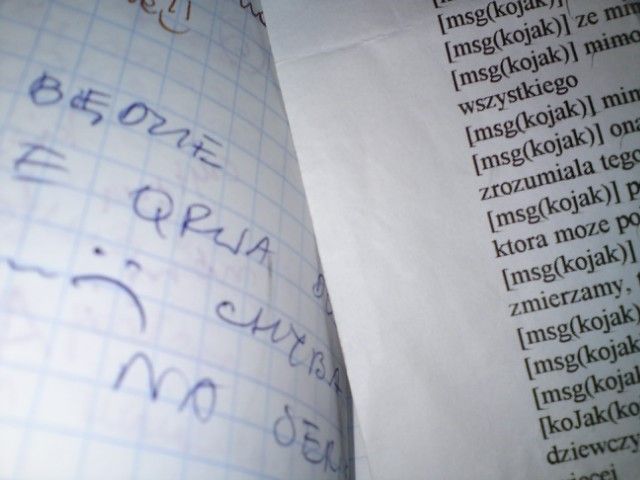 BĘDZIE
E QRWA
CHYBA
NA SER
[msg(kojak)]
[msg(kojak)] ze mi
[msg(kojak)] mimo
wszystkiego
[msg(kojak)] mim
[msg(kojak)] ona
zrozumiala tego
[msg(kojak)] p
ktora moze po
[msg(kojak)]
zmierzamy,
[msg(kojak)
[msg(kojak)
[msg(kojak
[koJak(ko
dziewczy